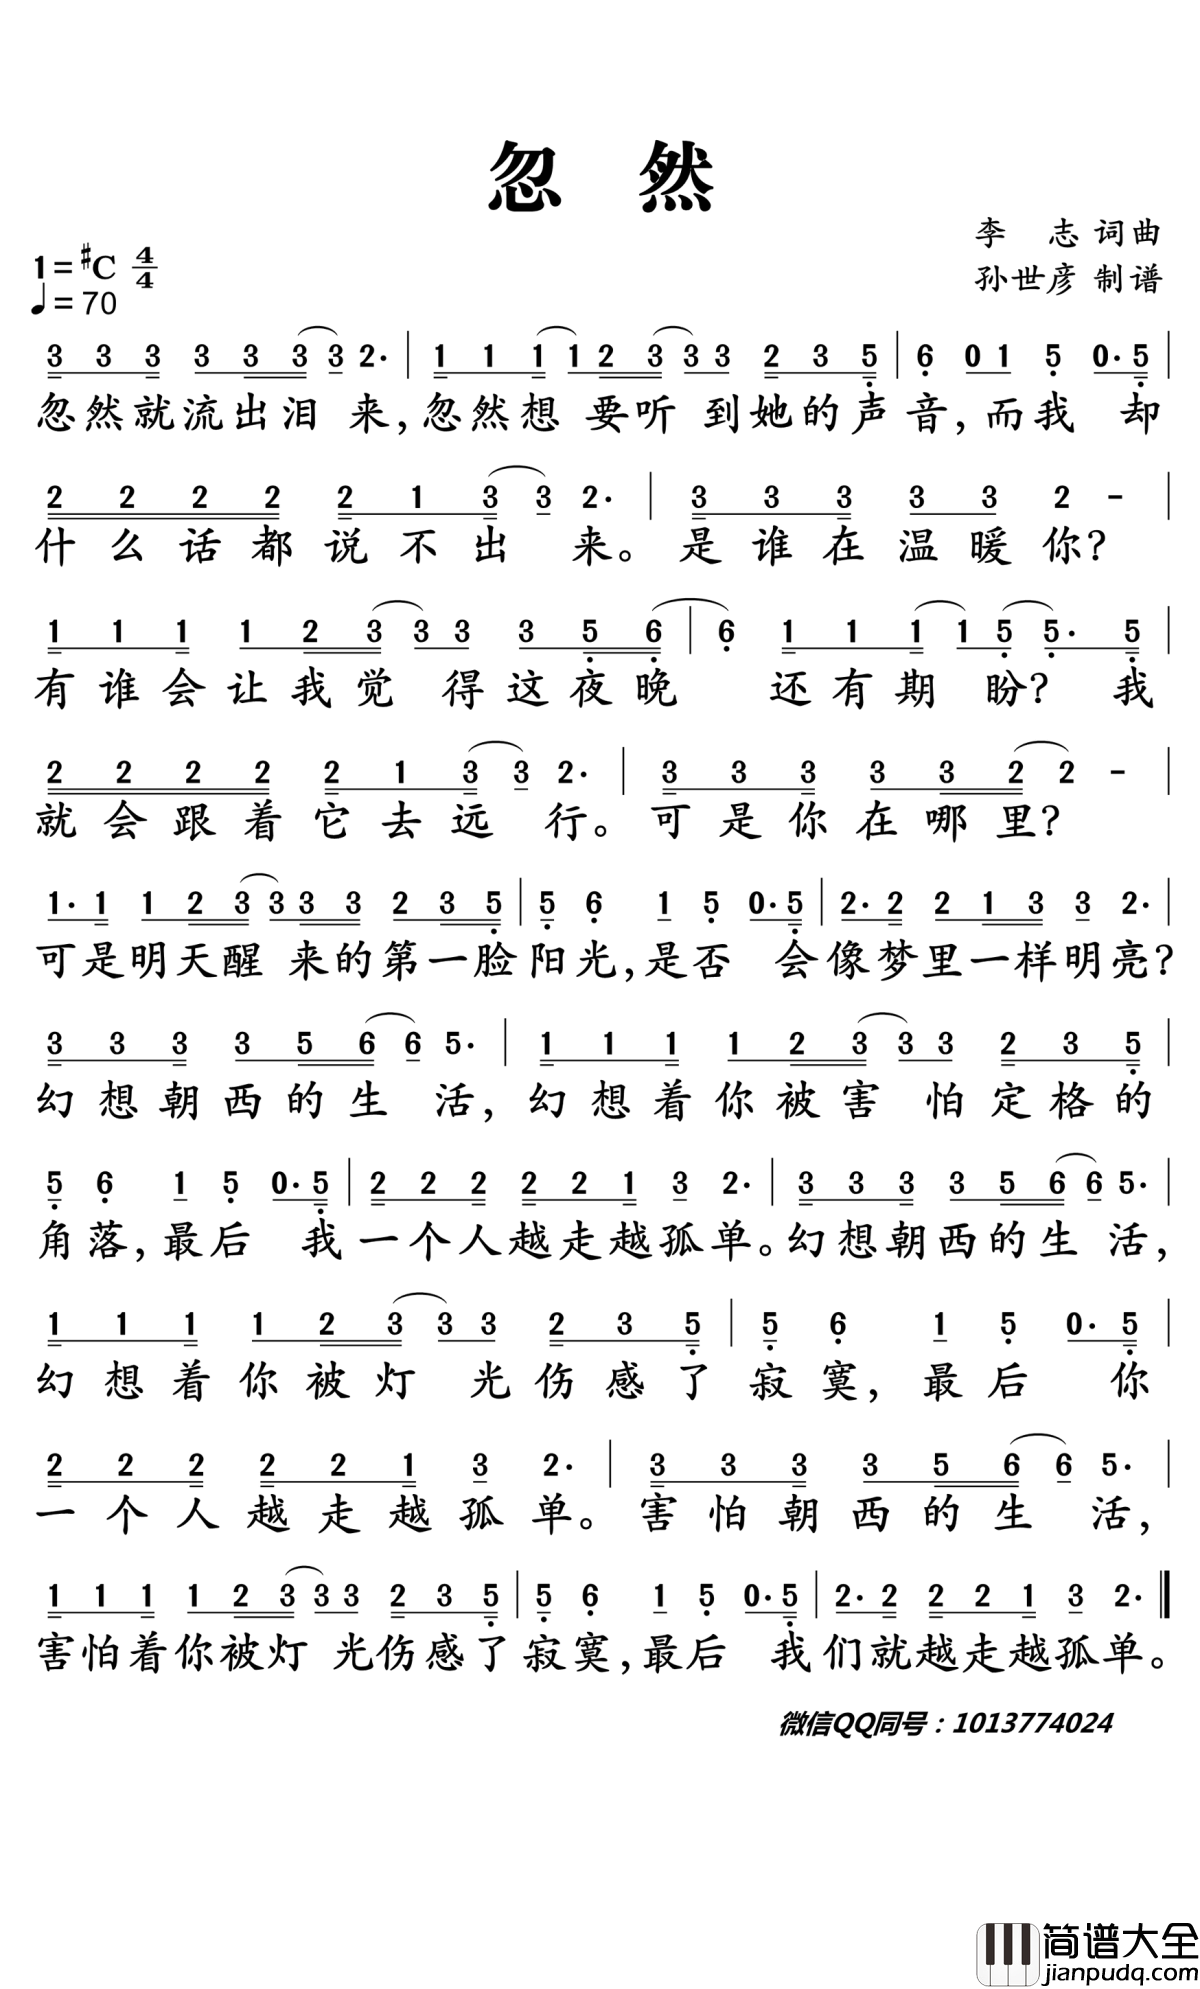 忽然
李 志 词曲
1=#C 4/4
孙世彦 制谱
♩=70
3 3 3 3 3 3 3 2· | 1 1 1 1 2 3 3 3 2 3 5 | 6 0 1 5 0· 5 |
忽然就流出泪 来,忽然想 要听 到她的声音,而我 却
2 2 2 2 2 1 3 3 2· | 3 3 3 3 3 2 - |
什么话都说不出 来。是谁在温暖你?
1 1 1 1 2 3 3 3 3 5 6 | 6 1 1 1 1 5 5· 5 |
有谁会让我觉 得这夜晚 还有期 盼? 我
2 2 2 2 2 1 3 3 2· | 3 3 3 3 3 2 2 - |
就会跟着它去远 行。可是你在哪里?
1· 1 1 2 3 3 3 3 2 3 5 | 5 6 1 5 0· 5 | 2· 2 2 1 3 3 2· |
可是明天醒 来的第一脸阳光,是否 会像梦里一样明亮?
3 3 3 3 5 6 6 5· | 1 1 1 1 2 3 3 3 2 3 5 |
幻想朝西的生 活,幻想着你被害 怕定格的
5 6 1 5 0· 5 | 2 2 2 2 2 1 3 2· | 3 3 3 3 5 6 6 5· |
角落,最后 我一个人越走越孤单。幻想朝西的生 活,
1 1 1 1 2 3 3 3 2 3 5 | 5 6 1 5 0· 5 |
幻想着你被灯 光伤感了寂寞,最后 你
2 2 2 2 2 1 3 2· | 3 3 3 3 5 6 6 5· |
一个人越走越孤单。害怕朝西的生 活,
1 1 1 1 2 3 3 3 2 3 5 | 5 6 1 5 0· 5 | 2· 2 2 2 1 3 2· ‖
害怕着你被灯 光伤感了寂寞,最后 我们就越走越孤单。
微信QQ同号：1013774024
简谱大全
jianpudq.com